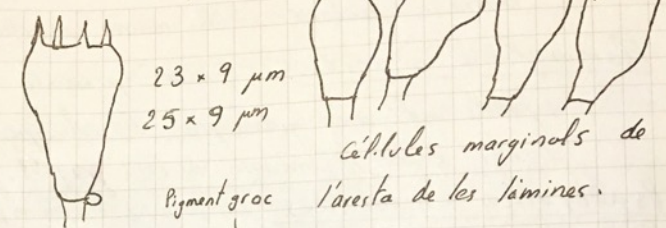 23 × 9 µm
25 × 9 µm
Cél.lules marginals de
l'aresta de les làmines.
Pigment groc